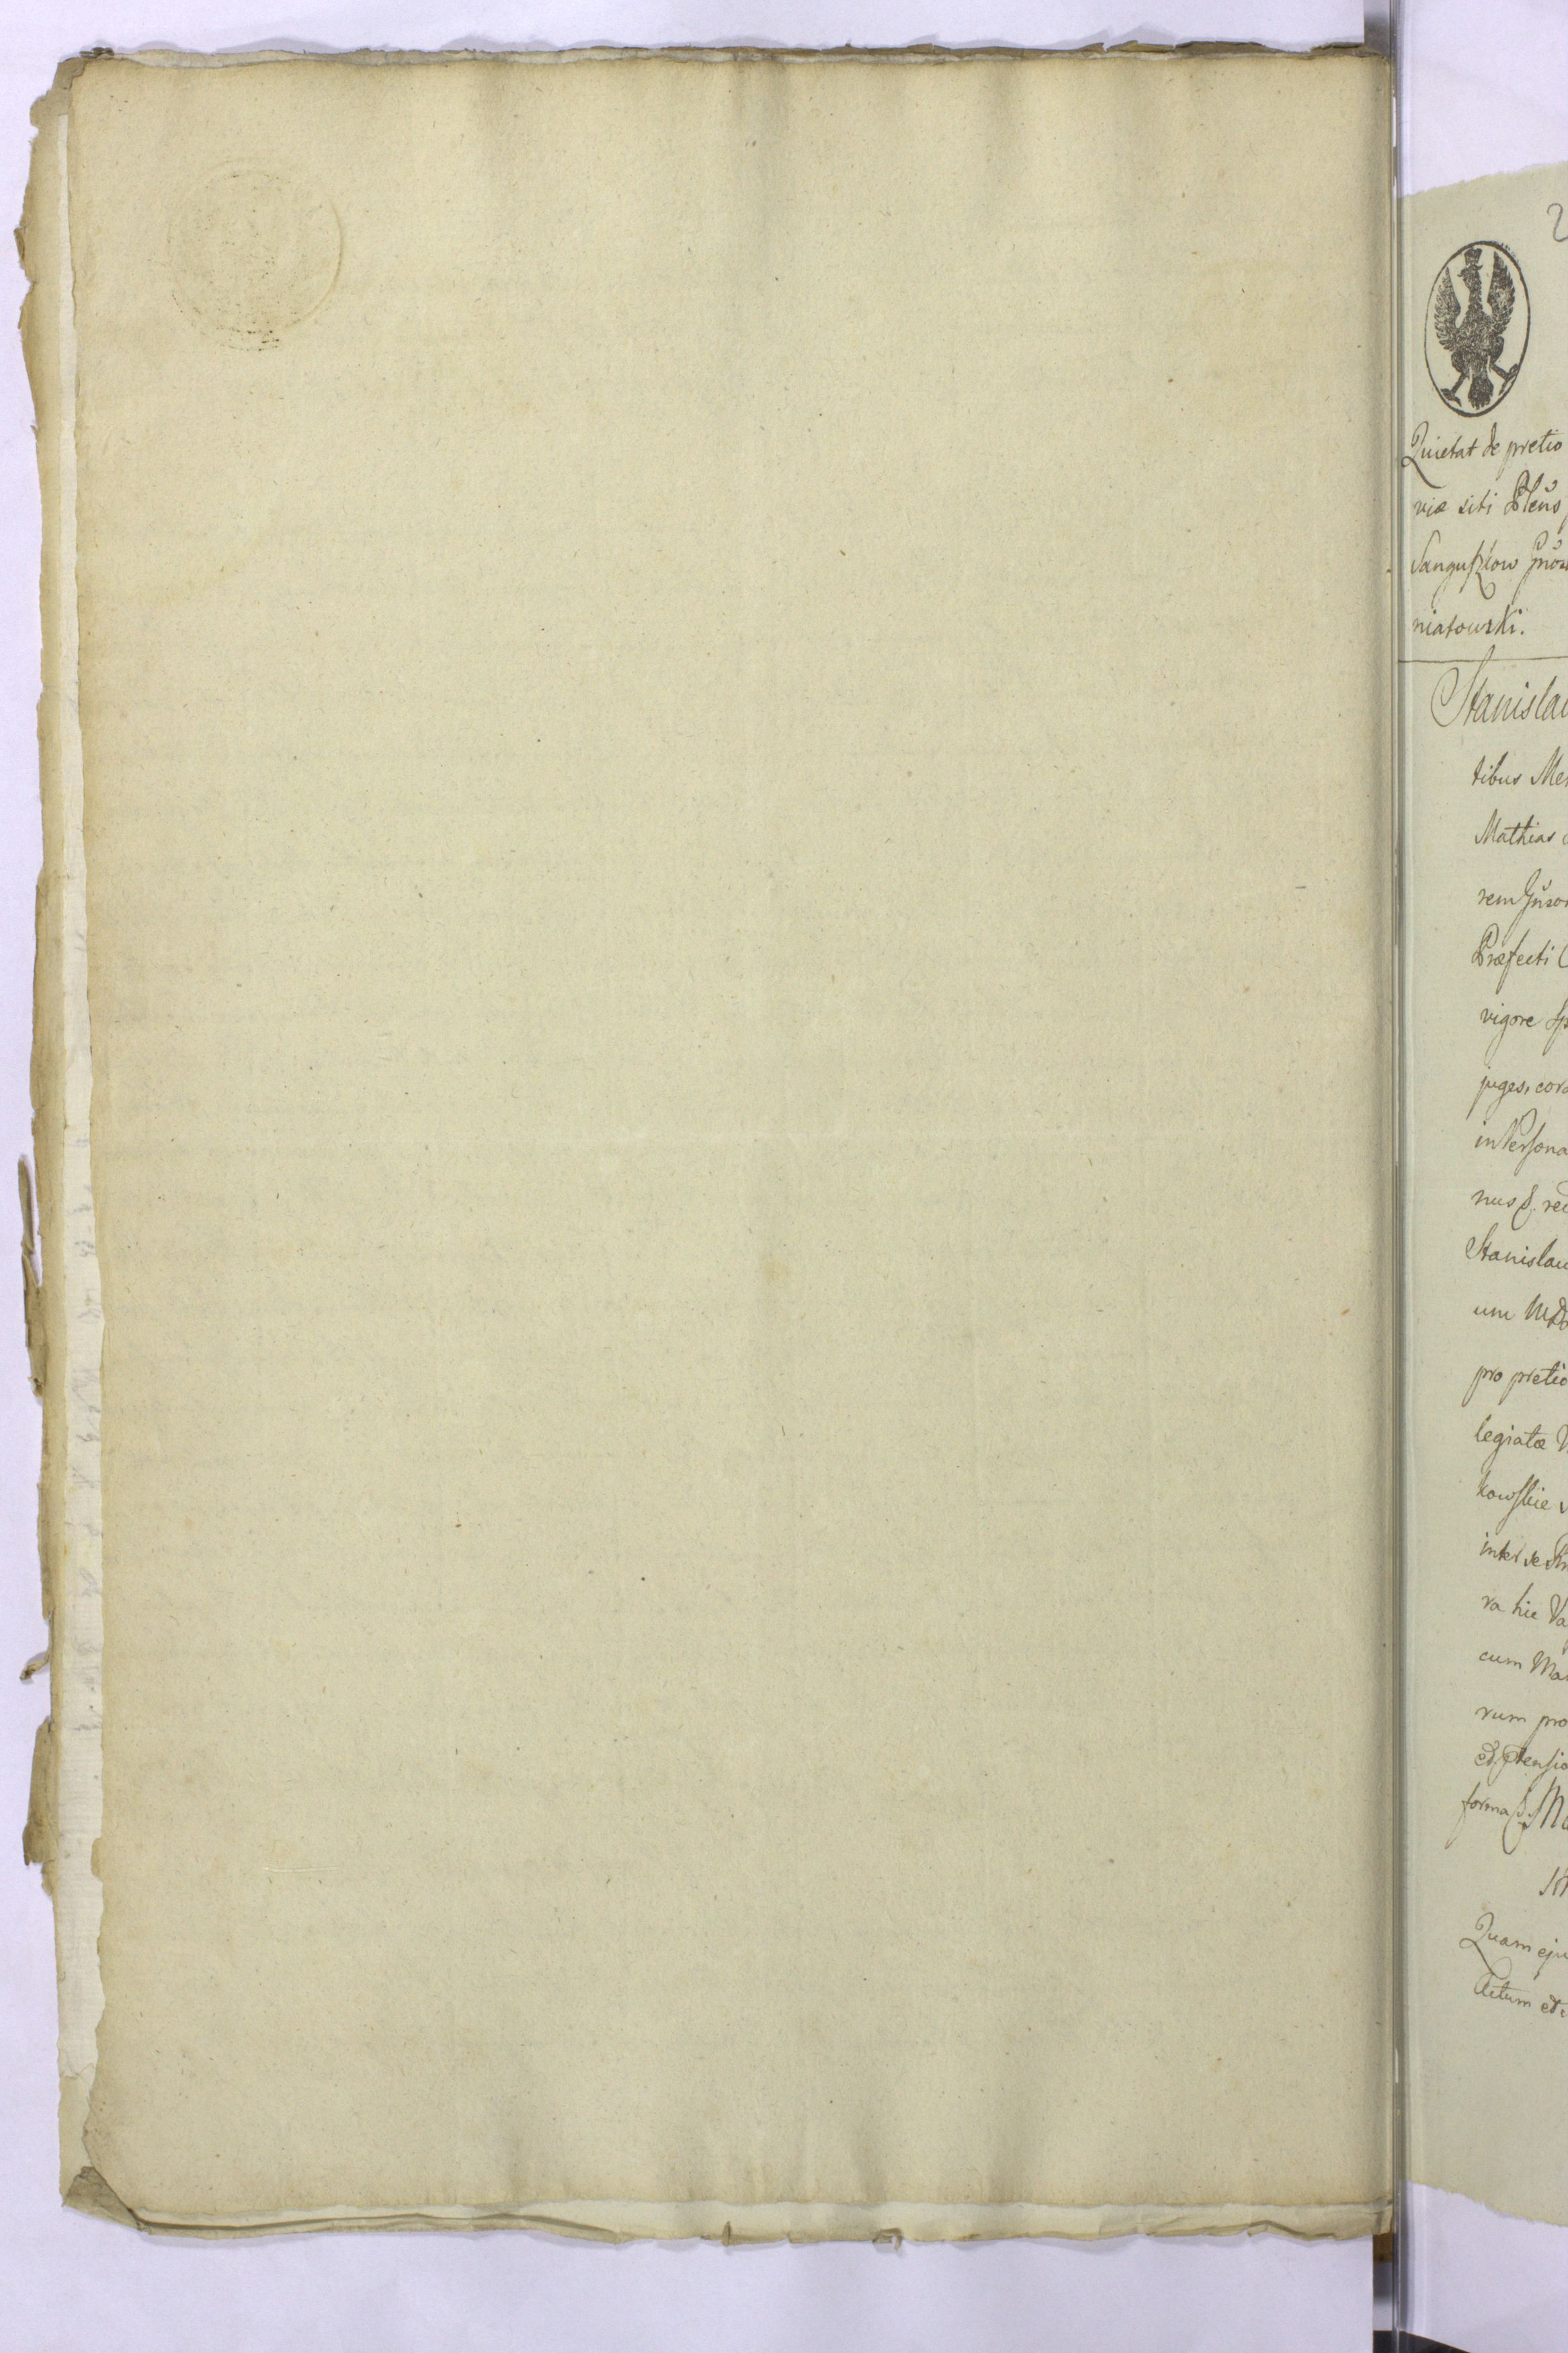 2
Quietat de pretio
viæ siti
Sanguszkow
niatowski.
Stanislau
tibus Me
Mathias
rem
Præfecti
vigore Sp
juges, cor
in Persona
nus &. rec
Stanislau
um
pro pretio
legiatæ
kowskie
inter se
ra hic Va
cum Ma
rum pro
et. ptensio
forma &. Ma
Quam eju
Actum et i